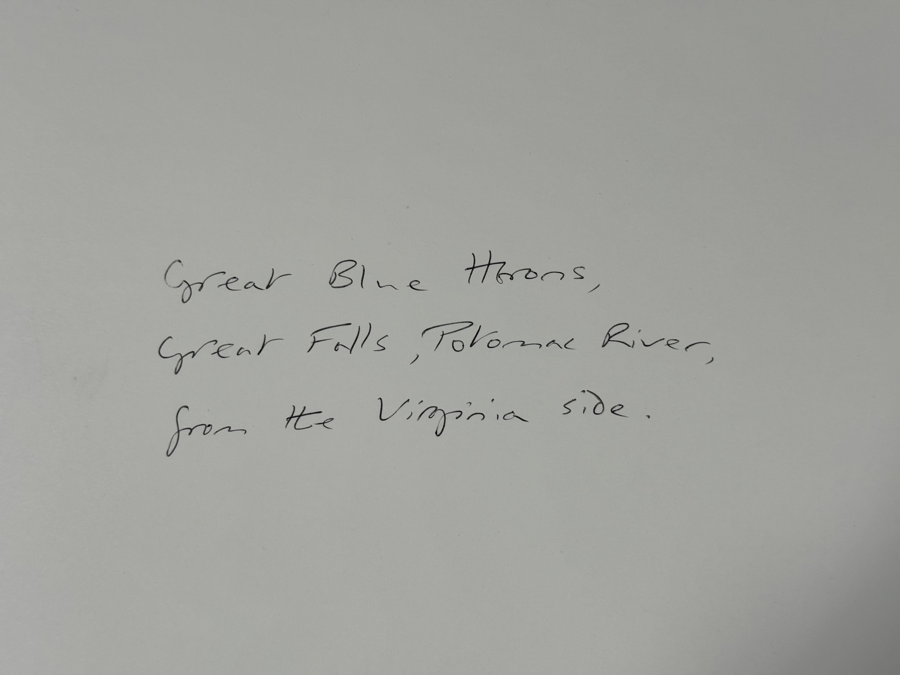 Great Blue Herons,
Great Falls, Potomac River,
from the Virginia side.